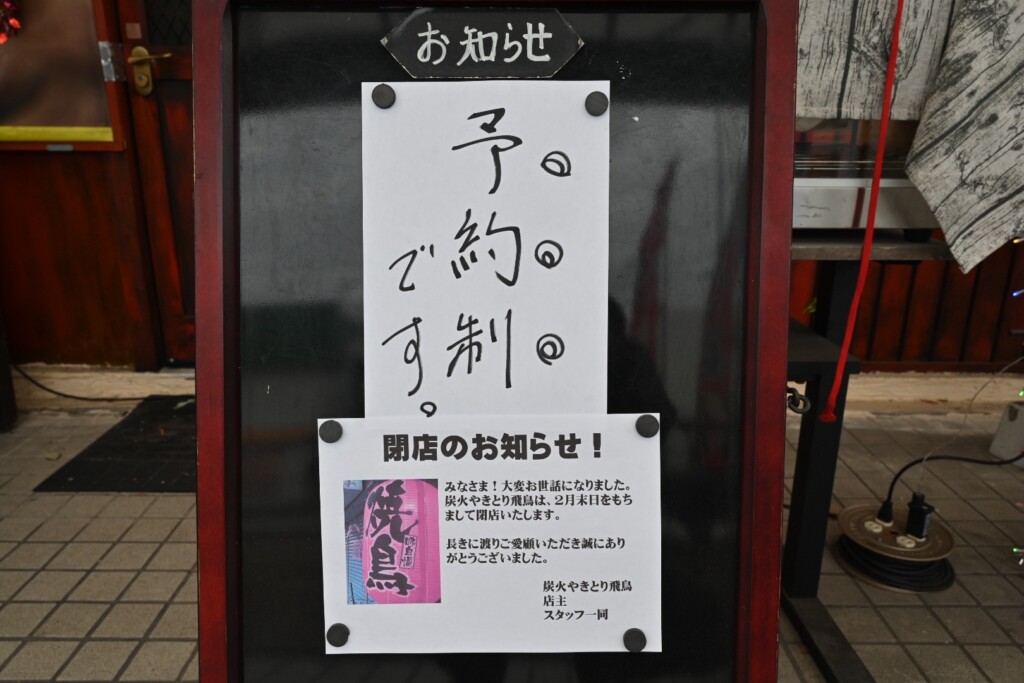 お知らせ
予約制
です。
閉店のお知らせ！
みなさま！大変お世話になりました。
炭火やきとり飛鳥は、2月末日をもち
まして閉店いたします。
長きに渡りご愛顧いただき誠にあり
がとうございました。
炭火やきとり飛鳥
店主
スタッフ一同
焼鳥